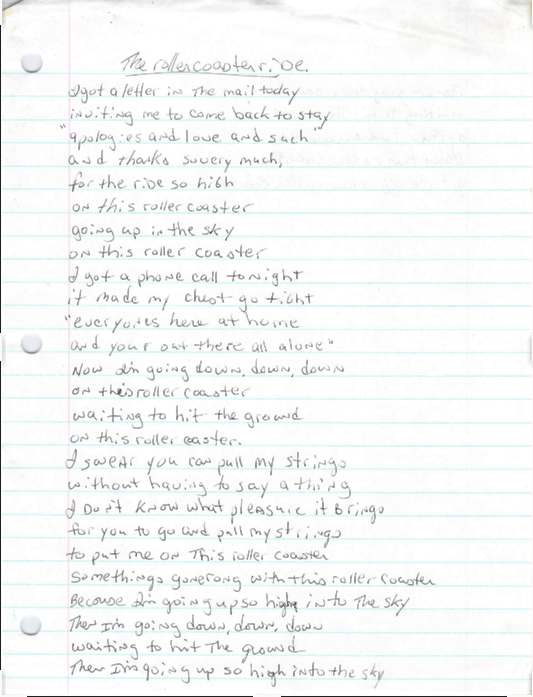 The rollercoaster ride.
I got a letter in the mail today
inviting me to come back to stay
"apologies and love and such"
and thanks so very much,
for the ride so high
on this roller coaster
going up in the sky
on this roller coaster
I got a phone call tonight
it made my chest go tight
"everyones here at home
and your out there all alone"
Now Im going down, down, down
on this roller coaster
waiting to hit the ground
on this roller easter.
I swear you can pull my strings
without having to say a thing
I Don't know what pleasure it Brings
for you to go and pull my strings
to put me on This roller coaster
Somethings gonerong with this roller coaster
Because Im going up so high into The sky
Then I'm going down, down, down
waiting to hit The ground
Then I'm going up so high into the sky